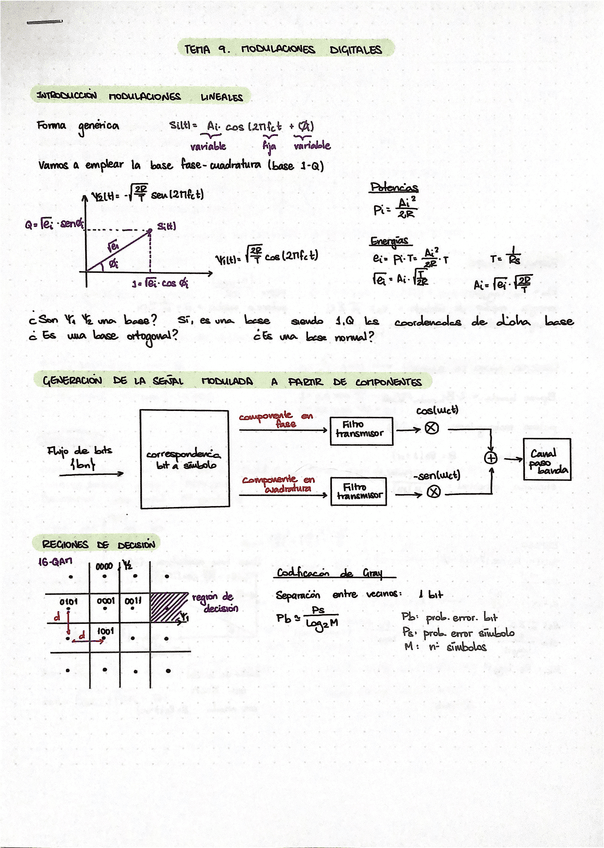 TEMA 9. MODULACIONES DIGITALES
INTRODUCCIÓN MODULACIONES LINEALES
Forma genérica Si(t) = Ai · cos (2πfct + φi)
variable fija variable
Vamos a emplear la base fase-cuadratura (base I-Q)
Ψ2(t) = -√(2R/T) sen(2πfct)
Q = √ei · senφi
Si(t)
√ei
φi
I = √ei · cos φi
Ψ1(t) = √(2R/T) cos(2πfct)
Potencias
Pi = Ai²/2R
Energías
ei = Pi·T = Ai²/2R · T T = 1/Rs
√ei = Ai · √(T/2R) Ai = √ei · √(2R/T)
¿Son Ψ1 Ψ2 una base? Sí, es una base siendo I,Q las coordenadas de dicha base
¿Es una base ortogonal? ¿Es una base normal?
GENERACIÓN DE LA SEÑAL MODULADA A PARTIR DE COMPONENTES
Flujo de bits
{bn}
correspondencia
bit a símbolo
componente en
fase
Filtro
transmisor
cos(ωct)
componente en
cuadratura
Filtro
transmisor
-sen(ωct)
Canal
paso
banda
REGIONES DE DECISIÓN
16-QAM
0000 Ψ2
0101 0001 0011
región de
decisión
Ψ1
d
d 1001
Codificación de Gray
Separación entre vecinos: 1 bit
Pb ≈ Ps/Log2M
Pb: prob. error. bit
Ps: prob. error símbolo
M: nº símbolos